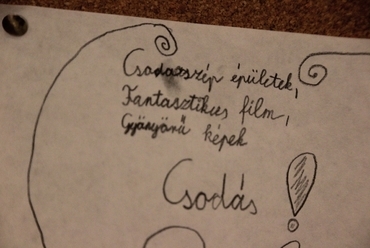 Csodaszép épületek,
Fantasztikus film,
Gyönyörű képek
Csodás!